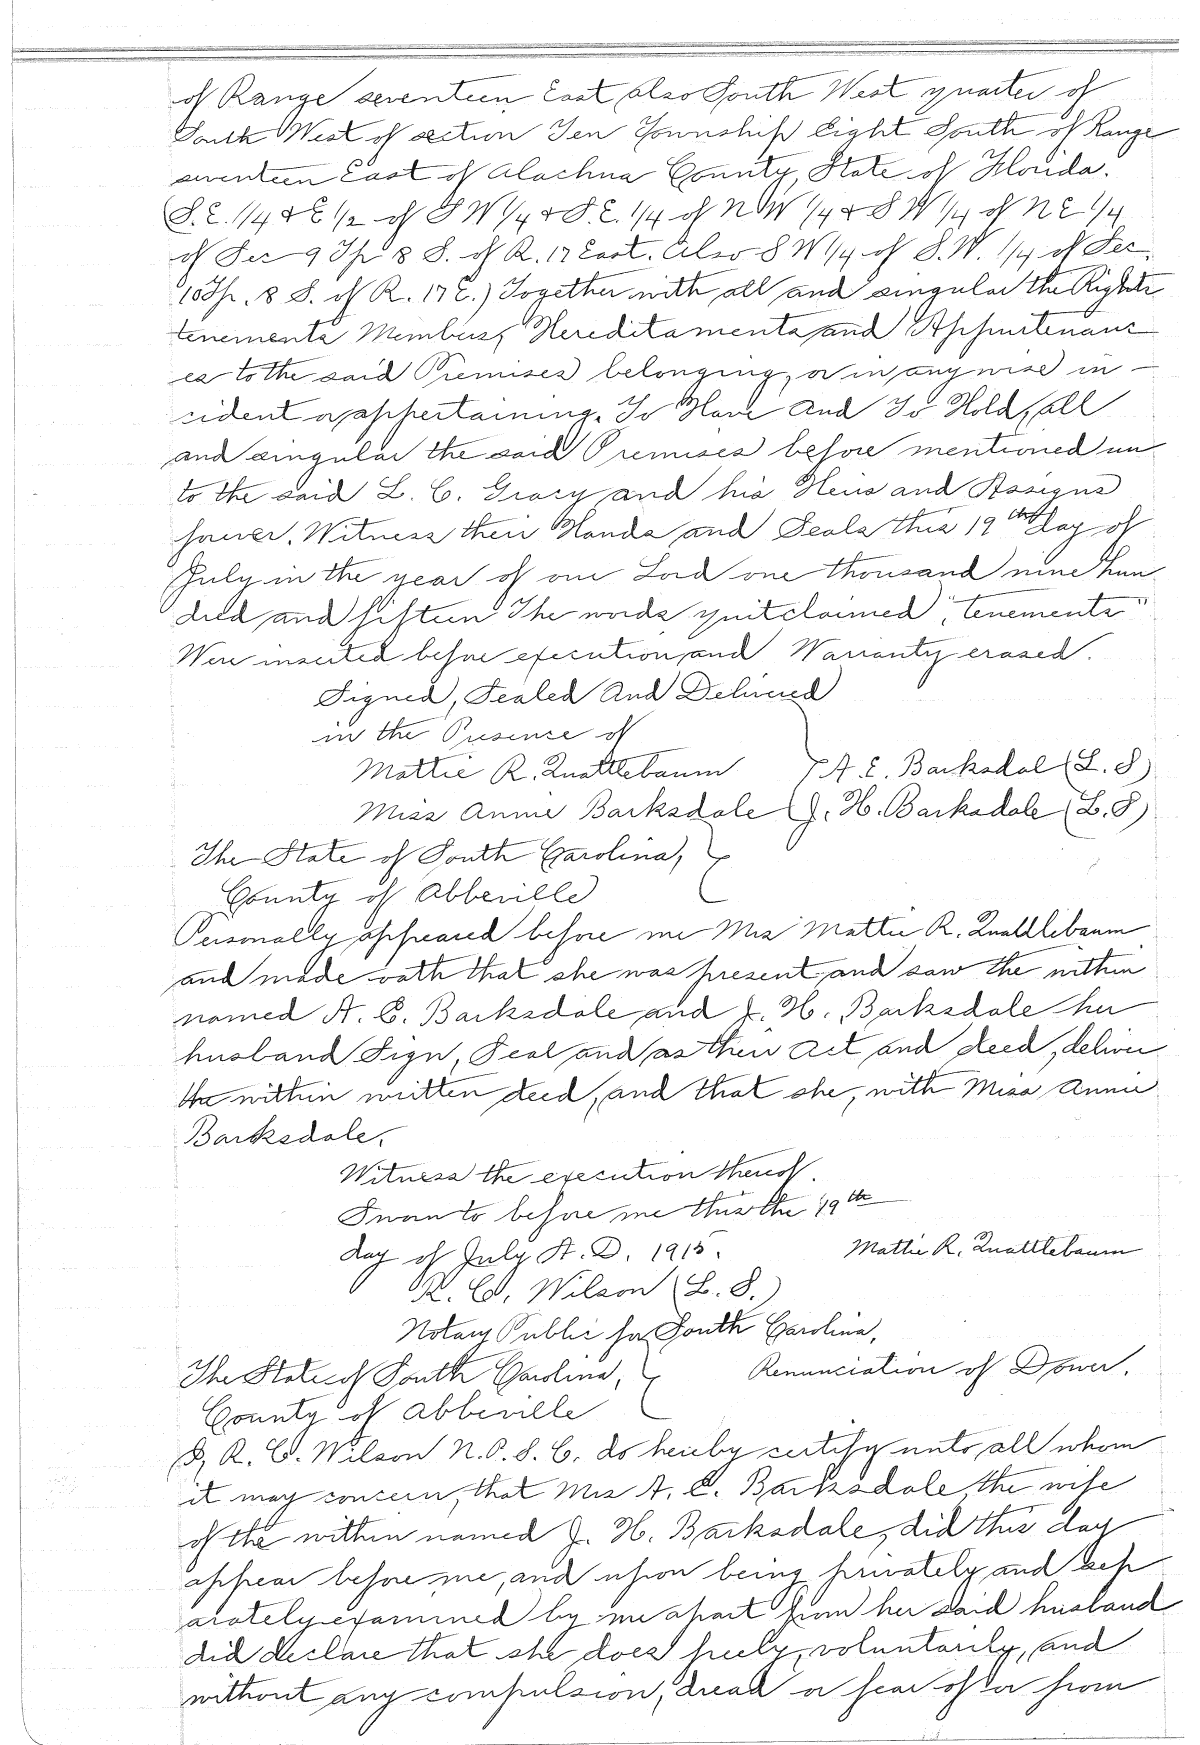 of Range seventeen East also South West quarter of
South West of section Ten Township Eight South of Range
seventeen East of Alachua County, State of Florida.
(S.E. 1/4 & E 1/2 of S W 1/4 & S.E. 1/4 of N W 1/4 & S W 1/4 of N E 1/4
of Sec 9 Tp 8 S. of R. 17 East. Also S W 1/4 of S.W. 1/4 of Sec.
10 Tp. 8 S. of R. 17 E.) Together with all and singular the Rights
tenements Members, Hereditaments and Appurtenanc
es to the said Premises belonging, or in any wise in-
cident or appertaining. To Have And To Hold, all
and singular the said Premises before mentioned un
to the said L. C. Gracy and his Heirs and Assigns
forever. Witness their Hands and Seals this 19th day of
July in the year of our Lord one thousand nine hun
dred and fifteen The words quitclaimed, "tenements"
Were inserted before execution and Warranty erased.
Signed, Sealed And Delivered
in the Presence of
Mattie R. Quattlebaum } A. E. Barksdal (L. S)
Miss Annie Barksdale J. H. Barksdale (L. S)
The State of South Carolina, }
County of Abbeville
Personally appeared before me Mrs Mattie R. Quattlebaum
and made oath that she was present and saw the within
named A. E. Barksdale and J. H. Barksdale her
husband Sign, Seal and as their act and deed, deliver
the within written deed, and that she, with Miss Annie
Barksdale.
Witness the execution thereof.
Sworn to before me this the 19th
day of July A. D. 1915. Mattie R. Quattlebaum
R. C. Wilson (L. S.)
Notary Public for South Carolina,
The State of South Carolina, } Renunciation of Dower.
County of Abbeville
I, R. C. Wilson N. P. S. C. do hereby certify unto all whom
it may concern, that Mrs A. E. Barksdale, the wife
of the within named J. H. Barksdale, did this day
appear before me, and upon being privately and sep
arately examined by me apart from her said husband
did declare that she does freely, voluntarily, and
without any compulsion, dread or fear of or from